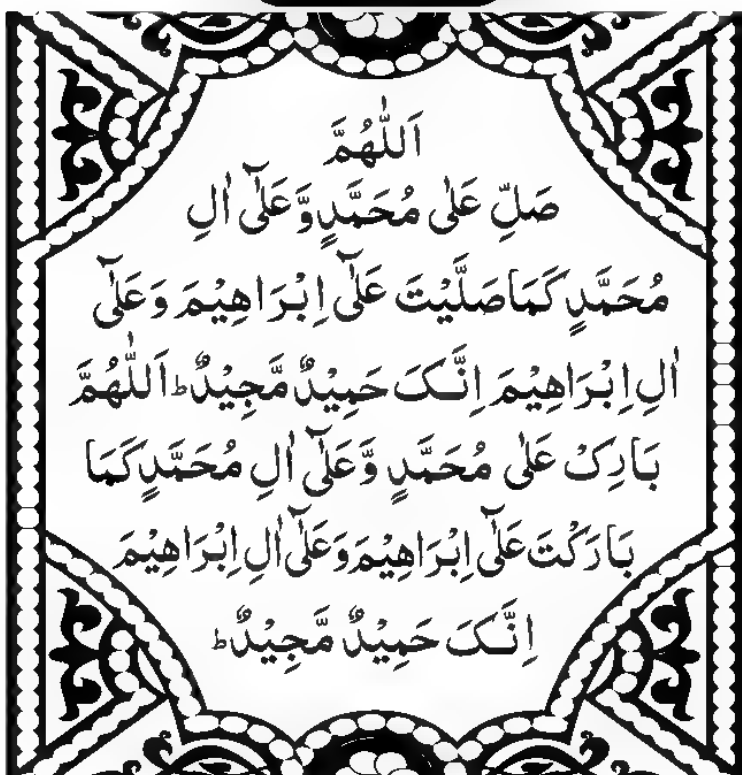 اَللّٰهُمَّ
صَلِّ عَلٰی مُحَمَّدٍ وَّعَلٰٓی اٰلِ
مُحَمَّدٍ كَمَا صَلَّيْتَ عَلٰٓی اِبْرَاهِيْمَ وَعَلٰٓی
اٰلِ اِبْرَاهِيْمَ اِنَّکَ حَمِيْدٌ مَّجِيْدٌ ؕ اَللّٰهُمَّ
بَارِکْ عَلٰی مُحَمَّدٍ وَّعَلٰٓی اٰلِ مُحَمَّدٍ كَمَا
بَارَكْتَ عَلٰٓی اِبْرَاهِيْمَ وَعَلٰٓی اٰلِ اِبْرَاهِيْمَ
اِنَّکَ حَمِيْدٌ مَّجِيْدٌ ؕ